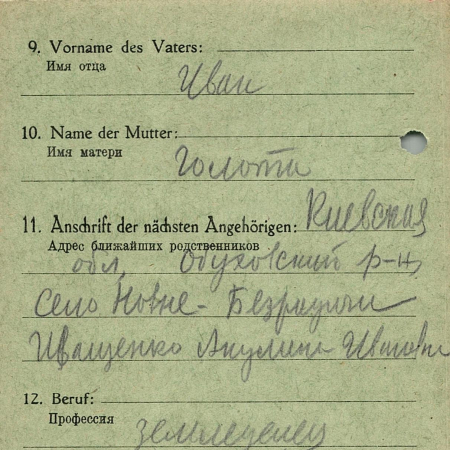 9. Vorname des Vaters:
Имя отца
Иван
10. Name der Mutter:
Имя матери
Голота
11. Anschrift der nächsten Angehörigen: Киевская
Адрес ближайших родственников
обл, Обуховский р-н,
село Новые-Безрадичи
Иващенко Акулина Ивановна
12. Beruf:
Профессия
земледелец